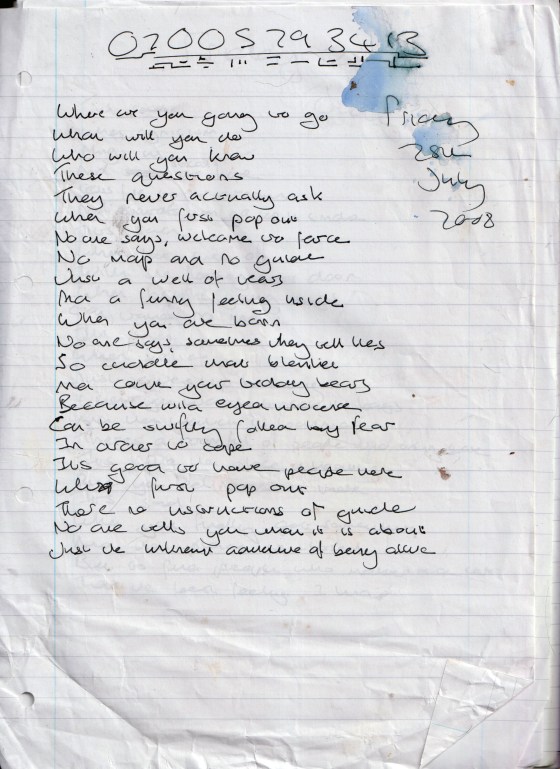 020052934 13
Friday
25th
July
2008
Where are you going to go
What will you do
Who will you know
These questions
They never actually ask
When you first pop out
No one says, welcome to farce
No map and no guide
Just a well of tears
And a funny feeling inside
When you are born
No one says, sometimes they tell lies
So cuddle that blanket
And count your teddy bears
Because wild eyed innocence
Can be swiftly followed by fear
In order to cope
Its good to have people here
When first pop out
There no instructions or guide
No one tells you what it is about
Just the inherent adventure of being alive